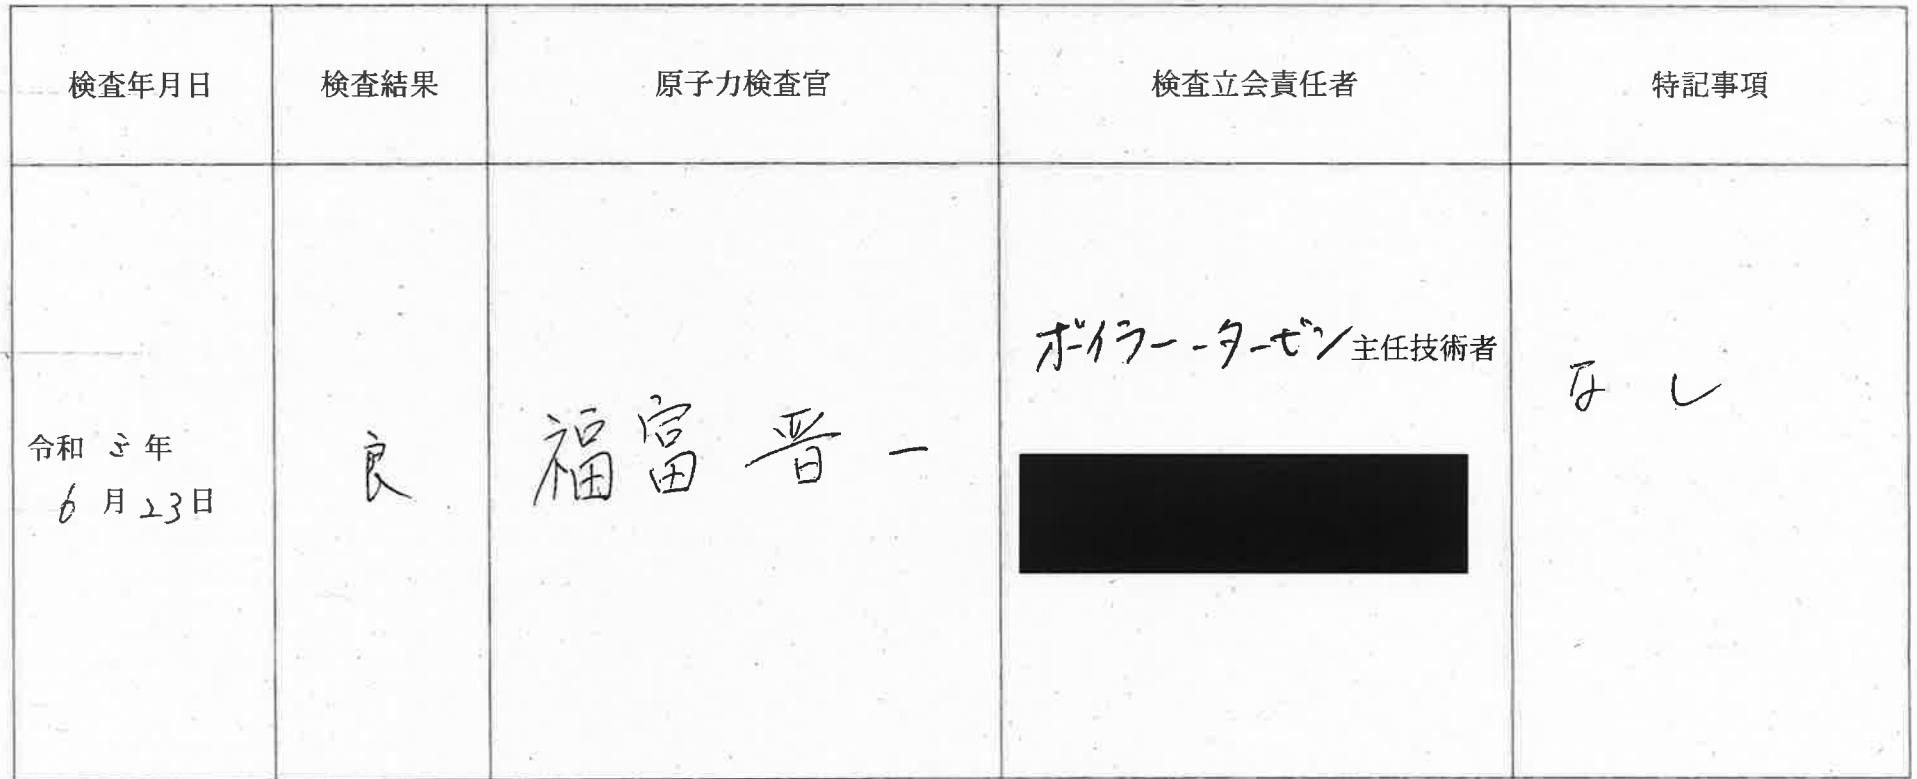 検査年月日
検査結果
原子力検査官
検査立会責任者
特記事項
令和 年
6 月 23日
良
福富 晋一
ボイラー・タービン主任技術者
なし